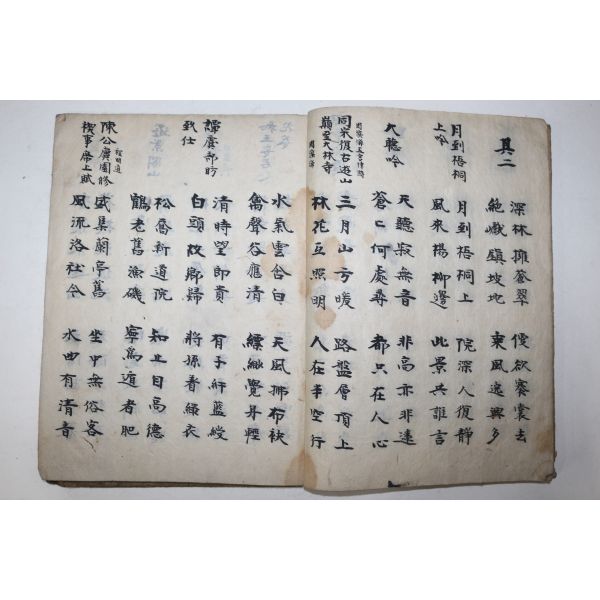 其二
深林擁蒼翠 優欲褰裳去
絶巘鎭坡地 乘風逸興多
月到梧桐上吟
月到梧桐上 院深人復靜
風來楊柳邊 此景共誰言
天聽吟
天聽寂無音 非高亦非遠
蒼〻何處尋 都只在人心
同宋復古遊山
巓至大林寺 周濂溪
三月山方暖 路盤層頂上
林花互照明 人在半空行
水氣雲含白 天風拂布袂
禽聲谷應清 縹緲覺身輕
虞部昉
致仕
清時望郎貴 有子紆藍綬
白頭故鄉歸 將孫着綠衣
松喬新道院 知止自高德
鶴老舊漁磯 寧爲遁者肥
陳公廙園修 程明道
禊事席上賦
盛集蘭亭舊 坐中無俗客
風流洛社今 水曲有清音